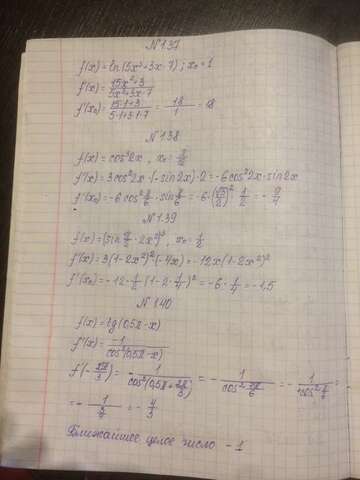 N 137
f(x) = ln(5x³+3x-7) ; x₀ = 1
f'(x) = (15x²+3)/(5x³+3x-7)
f'(x₀) = (15·1+3)/(5·1+3·1-7) = 18/1 = 18
N 138
f(x) = cos³2x , x₀ = π/12
f'(x) = 3cos²2x·(-sin2x)·2 = -6cos²2x·sin2x
f'(x₀) = -6cos²π/6·sinπ/6 = -6·(√3/2)²·1/2 = -9/4
N 139
f(x) = (sin π/2 - 2x²)³ , x₀ = 1/2
f'(x) = 3(1-2x²)²(-4x) = -12x(1-2x²)²
f'(x₀) = -12·1/2(1-2·1/4)² = -6·1/4 = -1,5
N 140
f(x) = tg(0,5π-x)
f'(x) = -1/cos²(0,5π-x)
f'(-2π/3) = -1/cos²(0,5π+2π/3) = -1/cos²7π/6 = -1/cos²π/6
= -1/(3/4) = -4/3
Ближайшее целое число -1